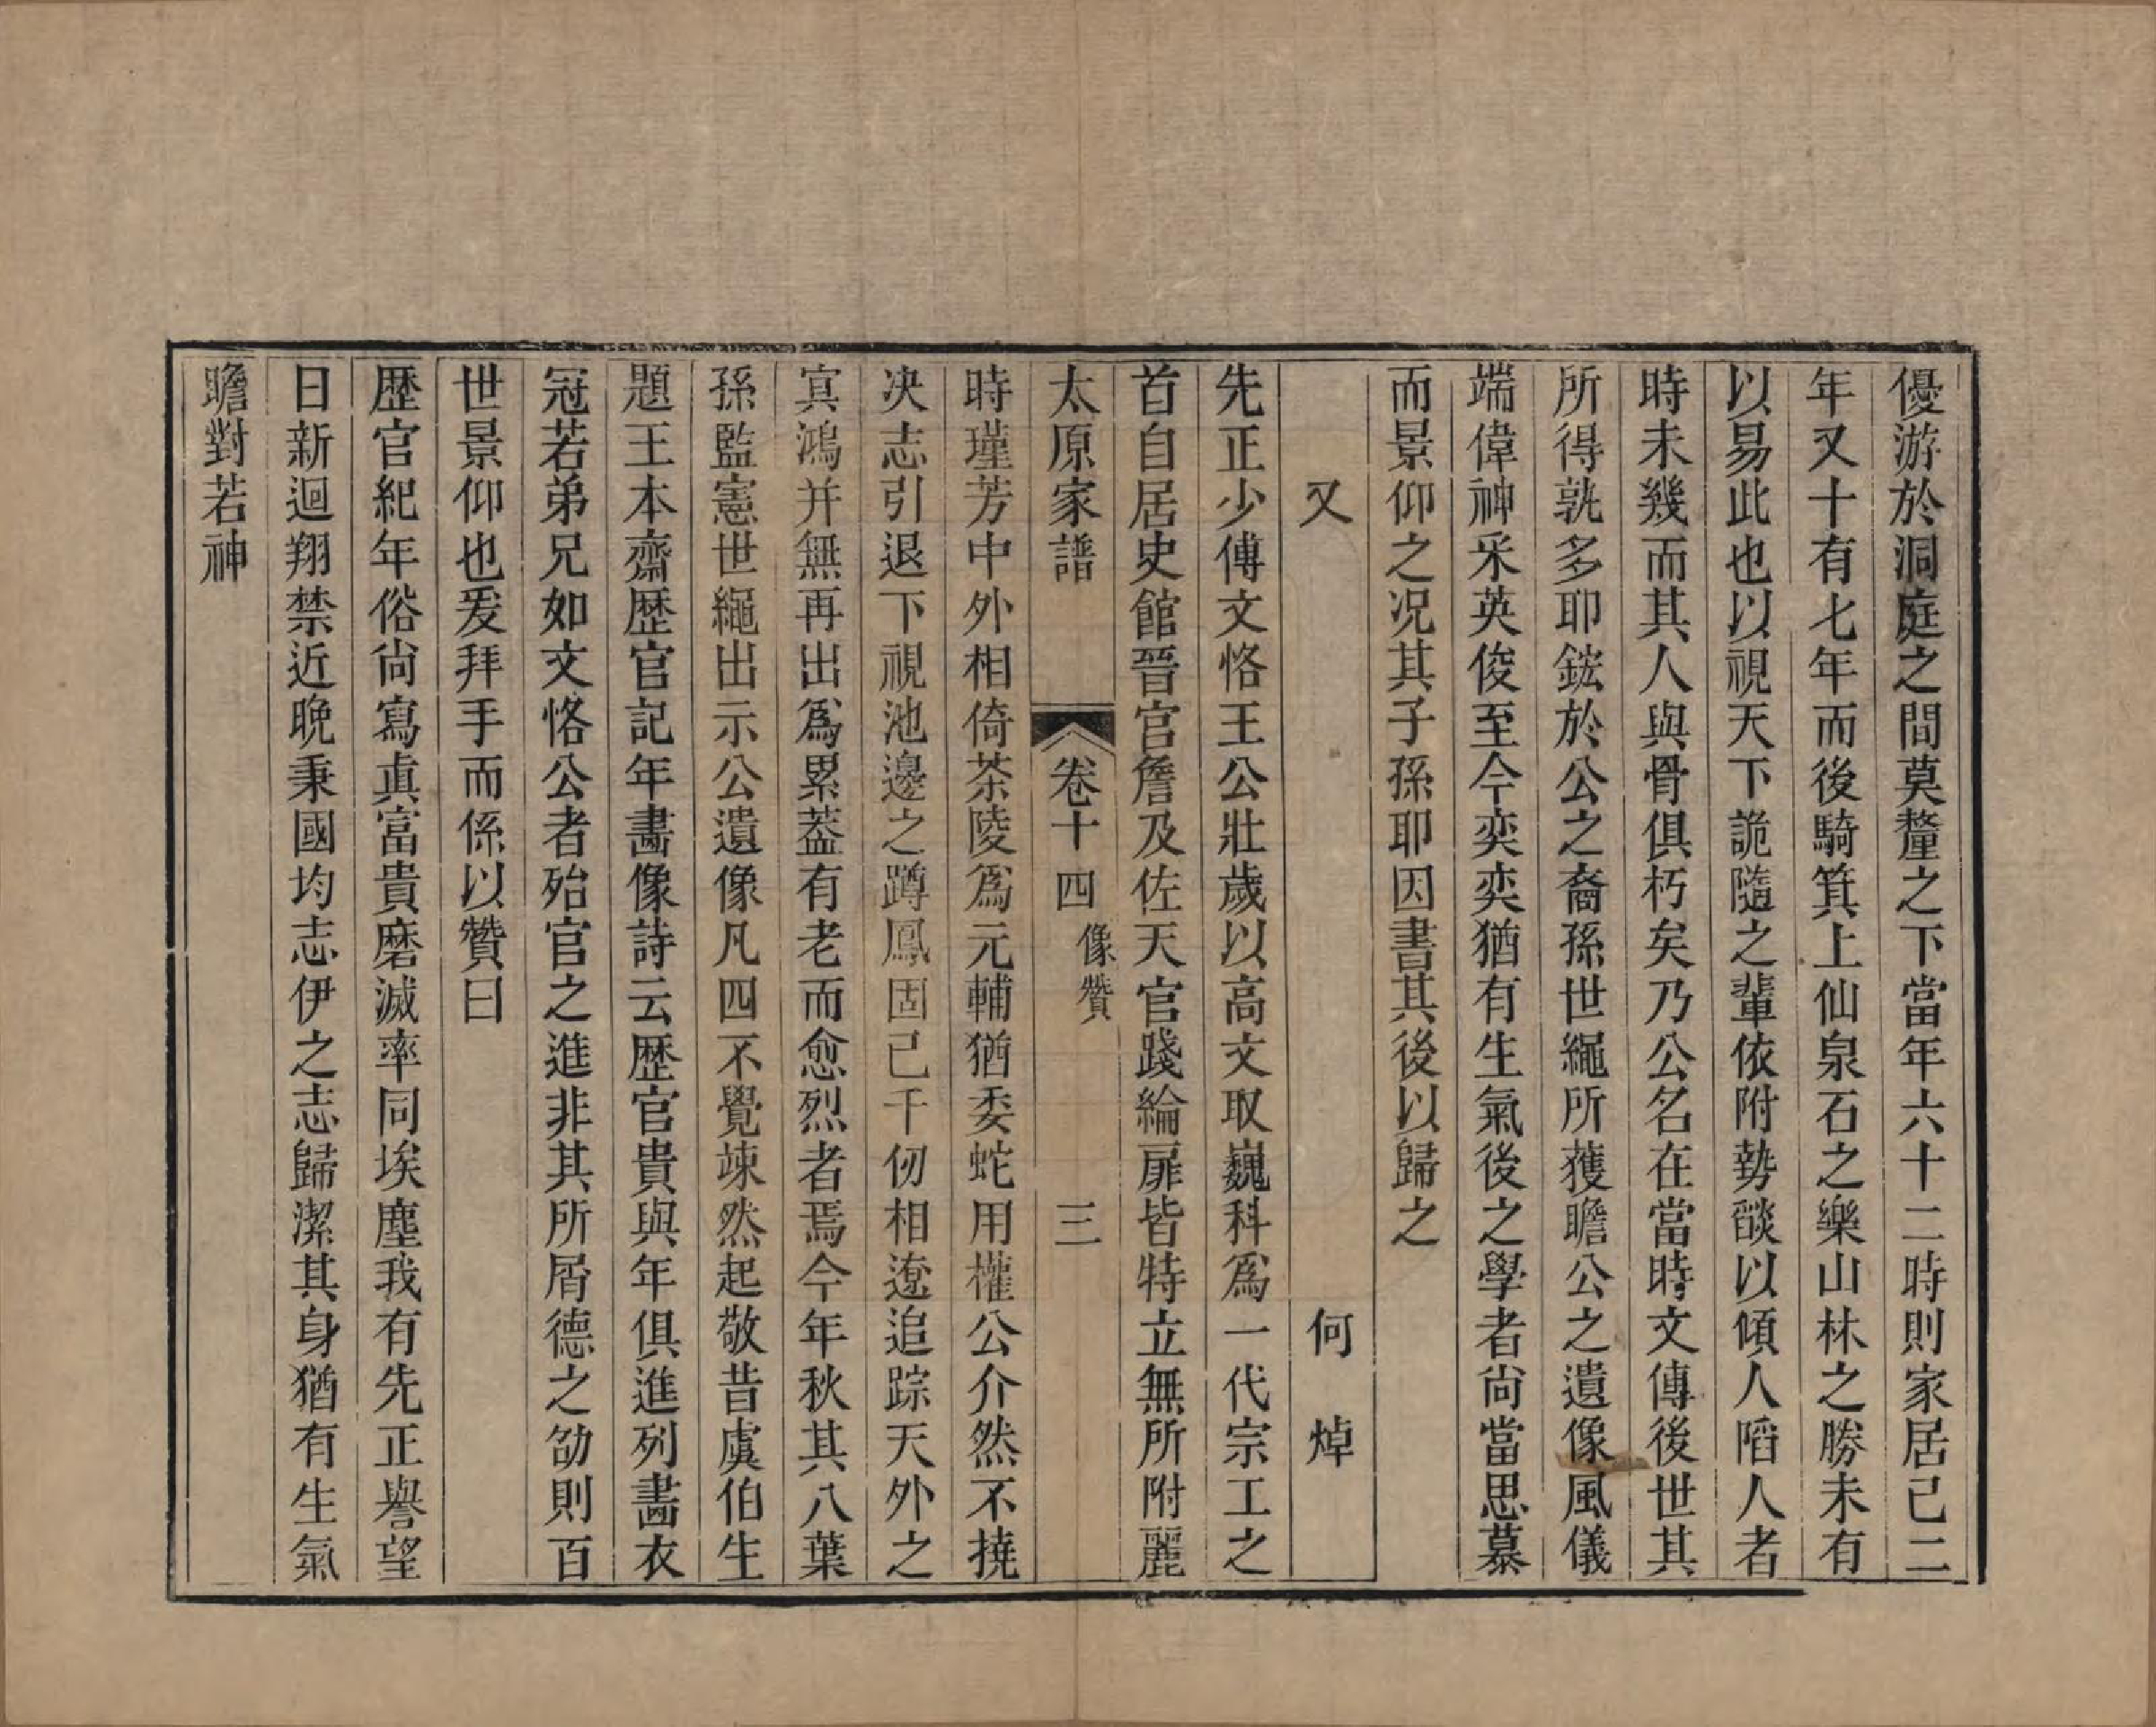 優游於洞庭之間莫釐之下當年六十二時則家居已二
年又十有七年而後騎箕上仙泉石之樂山林之勝未有
以易此也以視天下詭隨之輩依附勢燄以傾人䧟人者
時未幾而其人與骨俱朽矣乃公名在當時文傳後世其
所得孰多耶鋐於公之裔孫世繩所獲瞻公之遺像風儀
端偉神采英俊至今奕奕猶有生氣後之學者尚當思慕
而景仰之况其子孫耶因書其後以歸之
又　何焯
先正少傅文恪王公壯歲以高文取巍科爲一代宗工之
首自居史館晉宫詹及佐天官踐綸扉皆特立無所附麗
太原家譜　卷十四　像贊　三
時瑾芳中外相倚茶陵爲元輔猶委蛇用權公介然不撓
决志引退下視池邊之蹲鳳固已千仞相遼追踪天外之
㝠鴻并無再出爲累葢有老而愈烈者焉今年秋其八葉
孫監憲世繩出示公遺像凡四不覺竦然起敬昔虞伯生
題王本齋歷官記年畵像詩云歷官貴與年俱進列畵衣
冠若弟兄如文恪公者殆官之進非其所屑德之劭則百
世景仰也爰拜手而係以贊曰
歷官紀年俗尚寫眞富貴磨滅率同埃塵我有先正譽望
日新迴翔禁近晚秉國均志伊之志歸潔其身猶有生氣
瞻對若神